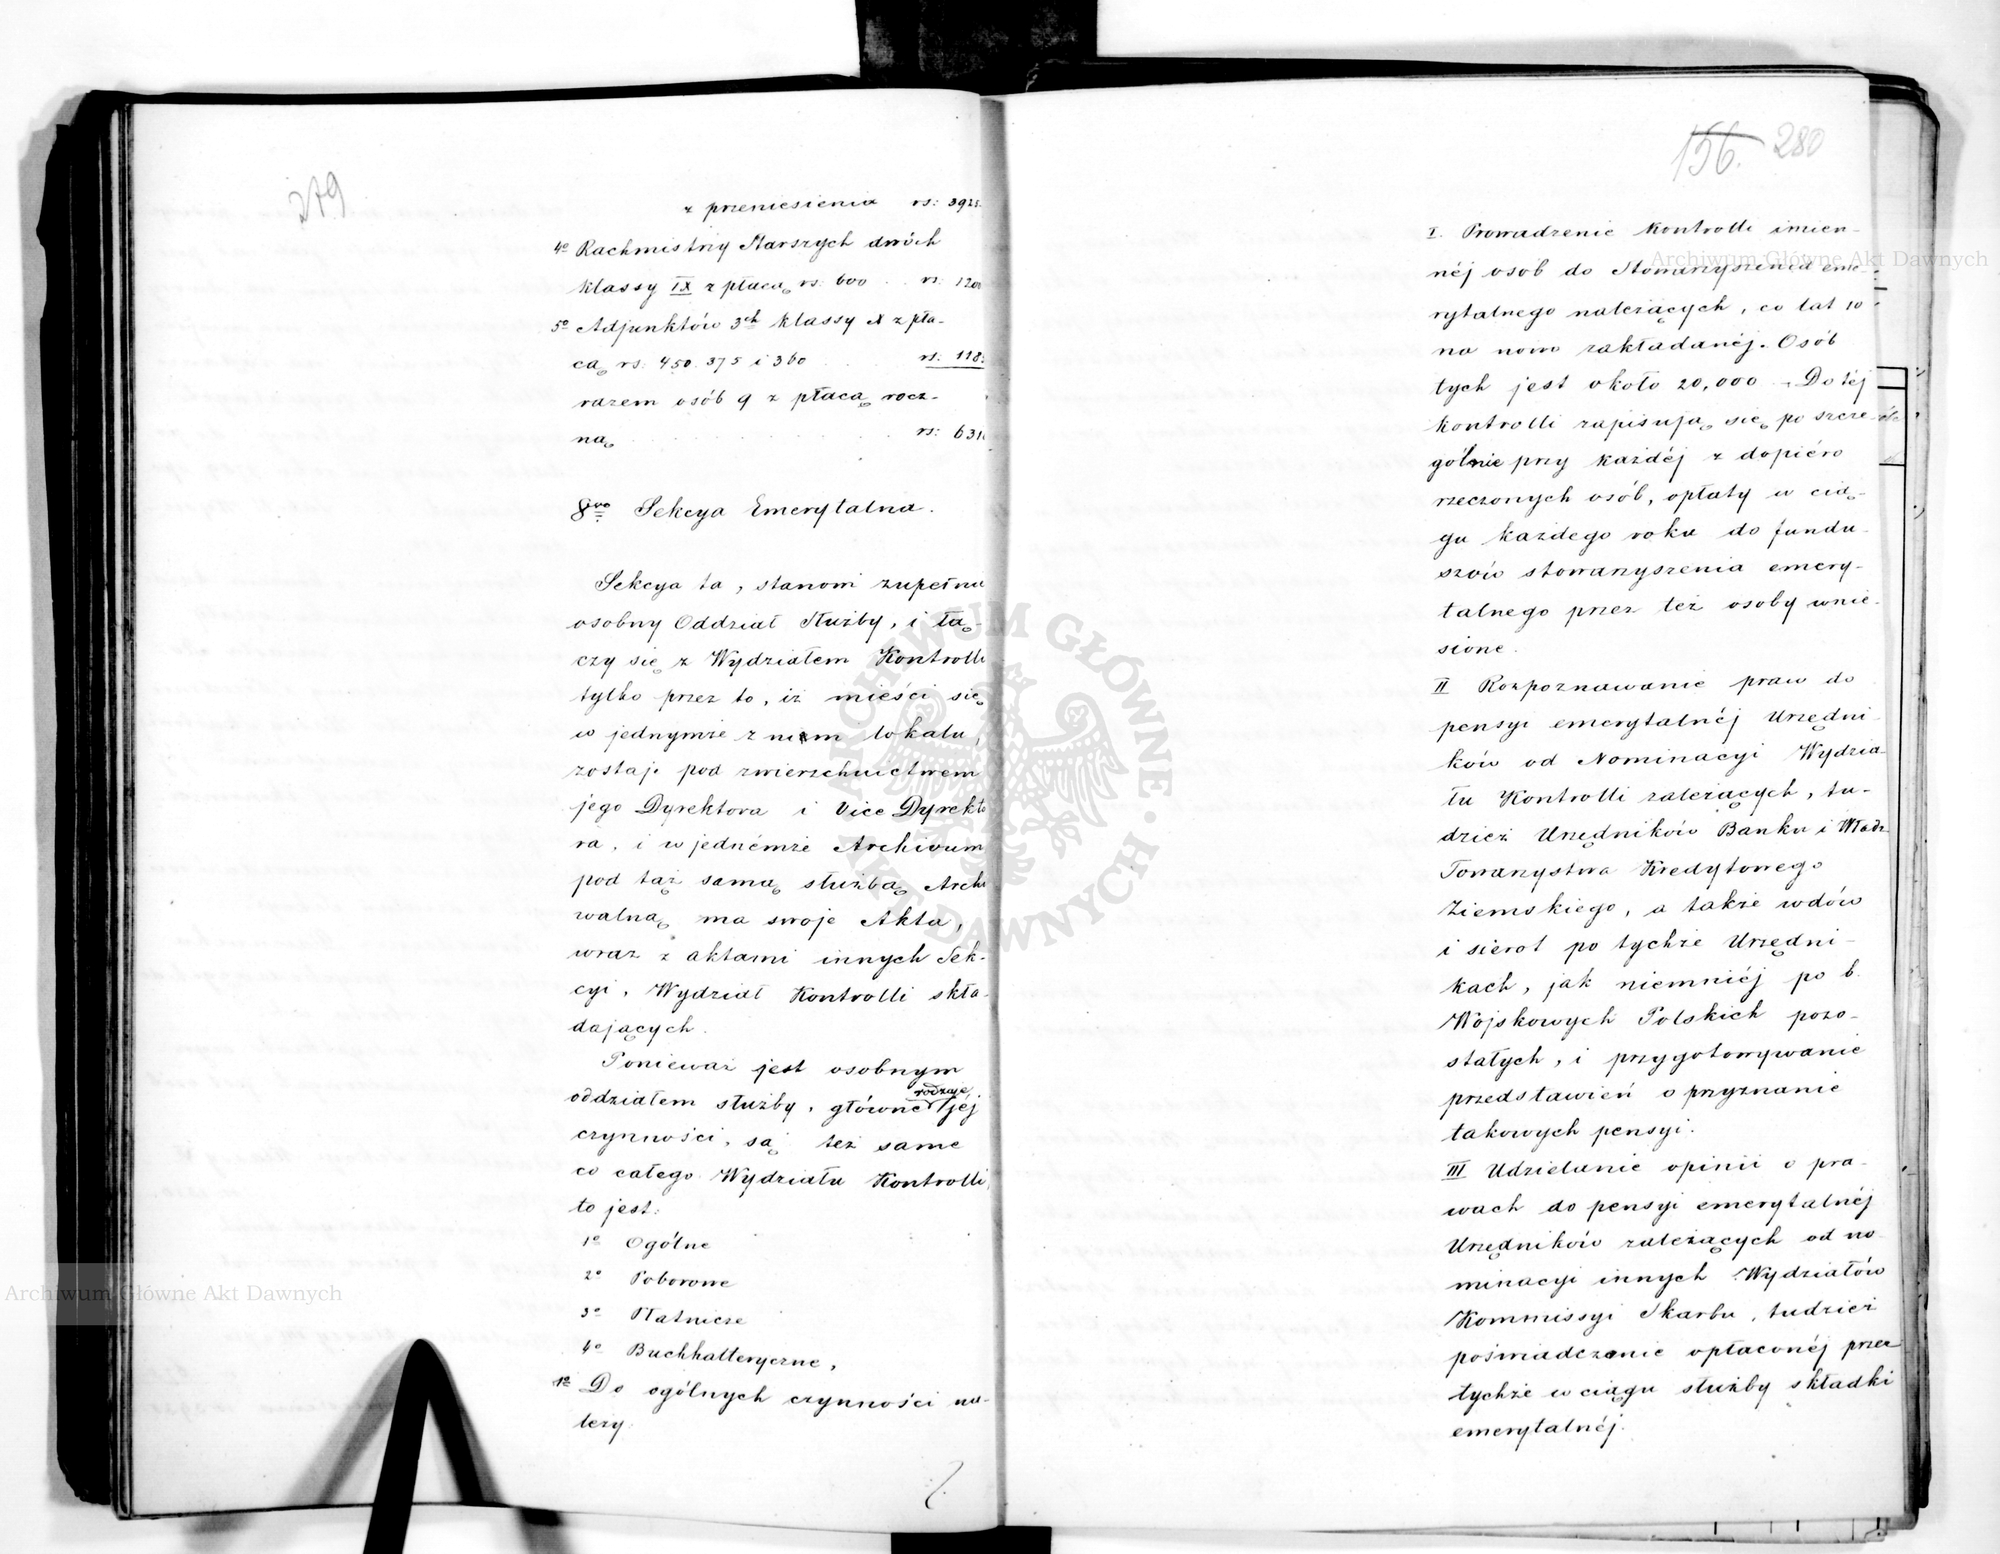 279
z przeniesienia rs: 3925
4º Rachmistrzy Starszych dwóch
klassy IX z płacą rs: 600 . . rs: 1200
5º Adjunktów 3ch klassy X z pła-
cą rs: 450. 375 i 360 . . rs: 1185
razem osób 9 z płacą rocz-
ną . . . . . . . . . rs: 631
8vo Sekcya Emerytalna.
Sekcya ta, stanowi zupełnie
osobny Oddział Służby, i łą-
czy się z Wydziałem Kontrolli
tylko przez to, iż mieści się
w jednymże z niem lokalu,
zostaje pod zwierzchnictwem
jego Dyrektora i Vice Dyrekto
ra, i w jednémże Archivum
pod tąż samą służbą Archi
walną ma swoje Akta,
wraz z aktami innych Sek-
cyi, Wydział Kontrolli skła-
dających.
Ponieważ jest osobnym
rodzaje
oddziałem służby, główne jéj
czynności, są też same
co całego Wydziału Kontrolli,
to jest:
1º Ogólne
2º Poborowe
3º Płatnicze
4º Buchhalteryczne,
1º Do ogólnych czynności na-
leży:
156. 280
I. Prowadzenie Kontrolli imien-
néj osób do Stowarzyszenia eme-
rytalnego należących, co lat 10
na nowo zakładanéj. Osób
tych jest około 20,000 - Do téj
kontrolli zapisują się po szcze-
gólnie przy każdéj z dopiéro
rzeczonych osób, opłaty w cią-
gu każdego roku do fundu-
szów stowarzyszenia emery-
talnego przez też osoby wnie-
sione.
II Rozpoznawanie praw do
pensyi emerytalnéj Urzędni-
ków od Nominacyi Wydzia-
łu Kontrolli zależących, tu-
dzież Urzędników Banku i Władz
Towarzystwa Kredytowego
Ziemskiego, a także wdów
i sierot po tychże Urzędni-
kach, jak niemniéj po b.
Wojskowych Polskich pozo-
stałych, i przygotowywanie
przedstawień o przyznanie
takowych pensyi.
III Udzielanie opinii o pra-
wach do pensyi emerytalnéj
Urzędników zależących od no-
minacyi innych Wydziałów
Kommissyi Skarbu, tudzież
poświadczanie opłaconéj przez
tychże w ciągu służby składki
emerytalnéj.
Archiwum Główne Akt Dawnych
Archiwum Główne Akt Dawnych
ARCHIWUM GŁÓWNE AKT DAWNYCH